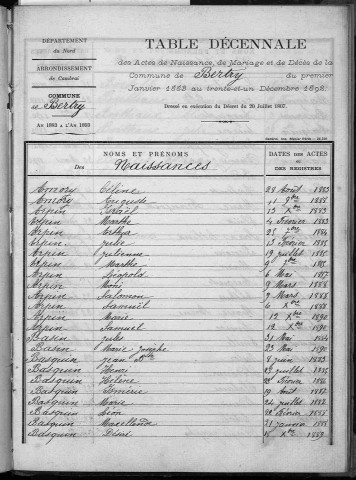 DÉPARTEMENT
du Nord
ARRONDISSEMENT
de Cambrai
COMMUNE
de Bertry
AN 1883 A L'AN 1893
TABLE DÉCENNALE
des Actes de Naissance, de Mariage et de Décès de la
Commune de Bertry du premier
Janvier 1883 au trente-et-un Décembre 1892.
Dressé en exécution du Décret du 20 Juillet 1807.
NOMS ET PRÉNOMS
Des Naissances
DATES DES ACTES
et
DES REGISTRES
Amory Céline 28 Août 1883
Amory Auguste 9bre 1888
Arpin Israël 13 Xbre 1883
Arpin Marthe 4 Février 1883
Arpin Arthur 25 1884
Arpin Julie 13 Février 1885
Arpin Julienne 19 Juillet 1885
Arpin Marthe
Arpin Léopold 6 Mai 1887
Arpin Noémi 9 Mars 1888
Arpin Salomon 9 Mars 1888
Arpin Samuël 1888
Arpin Marie 12 Xbre 1890
Arpin Samuel 12 Xbre 1890
Basen Jules 31 Mai 1884
Basen Marie Josèphe 23 Mai 1890
Basquin Jean Bte 8 Juin 1883
Basquin Henri Juillet 1885
Basquin Hélène Février 1886
Basquin 19 Août 1887
Basquin Maria 24 Juillet 1888
Basquin Léon Février 1888
Basquin 21 Janvier 1888
Basquin Désiré Xbre 1889